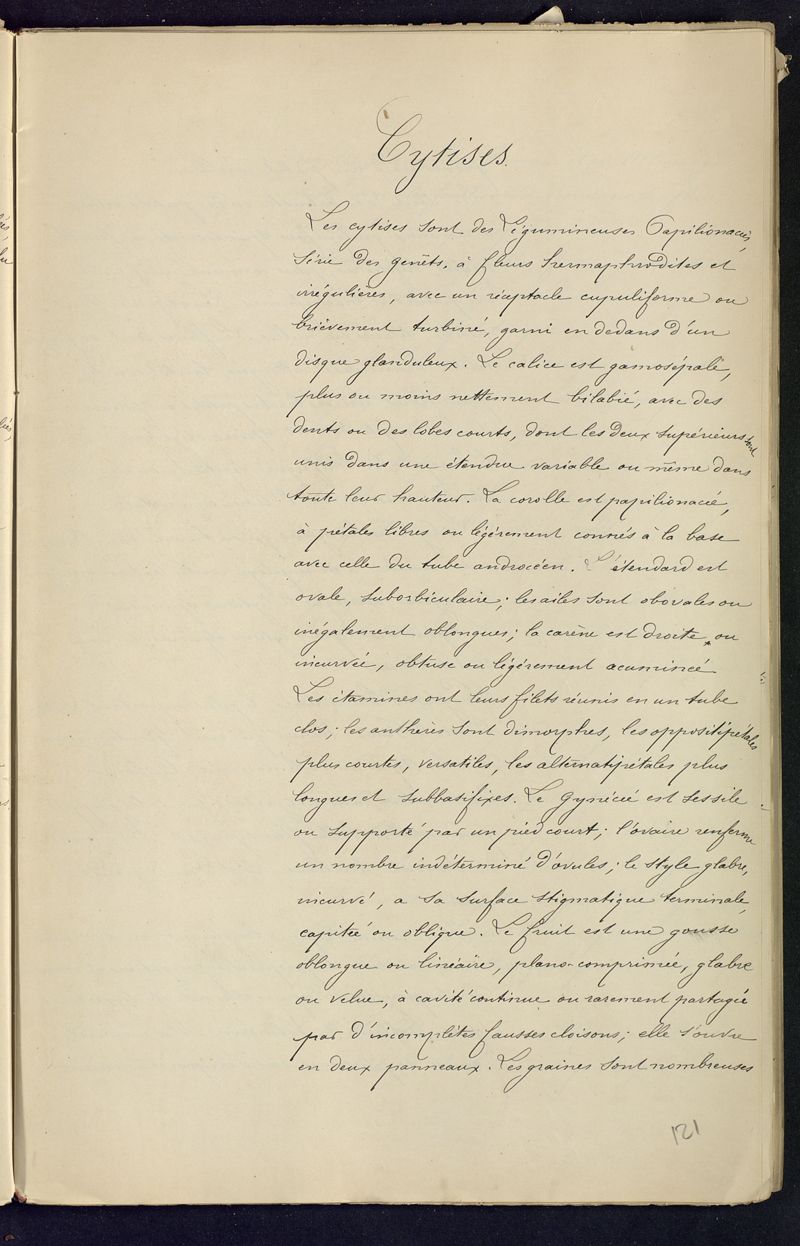 Cytises.
Les cytises sont des Légumineuses Papilionacées,
série des genêts, à fleurs hermaphrodites et
irrégulières, avec un réceptacle cupuliforme ou
brièvement turbiné, garni en dedans d'un
disque glanduleux. Le calice est gamosépale,
plus ou moins nettement bilabié, avec des
dents ou des lobes courts, dont les deux supérieurs sont
unis dans une étendue variable ou même dans
toute leur hauteur. La corolle est papilionacée,
à pétales libres ou légèrement connés à la base
avec celle du tube androcéen. L'étendard est
ovale, suborbiculaire; les ailes sont obovales ou
inégalement oblongues; la carène est droite ou
incurvée, obtuse ou légèrement acuminée
Les étamines ont leurs filets réunis en un tube
clos; les anthères sont dimorphes, les oppositipétales
plus courtes, versatiles, les alternatipétales plus
longues et subbasifixes. Le gynécée est sessile
ou supporté par un pied court; l'ovaire renferme
un nombre indéterminé d'ovules; le style glabre,
incurvé, a sa surface stigmatique terminale,
capitée ou oblique. Le fruit est une gousse
oblongue ou linéaire, plano-comprimée, glabre
ou velue, à cavité continue ou rarement partagée
par d'incomplètes fausses cloisons; elle s'ouvre
en deux panneaux. Les graines sont nombreuses
121